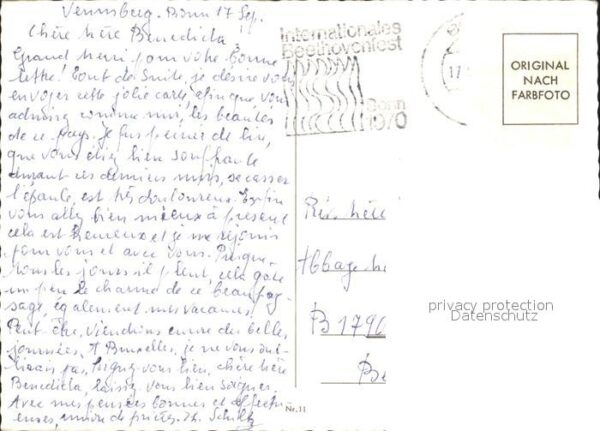 Venusberg. Bonn 17 Sep.
Chère Mère Benedicta
Grand merci pour votre bonne
lettre! tout de suite, je désire vous
envoyer cette jolie carte, afin que vous
admiriez comme moi, les beautés
de ce pays. Je fus peinée de lire,
que vous étiez bien souffrante
durant ces derniers mois, se casser
l'épaule, est très douloureux. Enfin
vous allez bien mieux à présent
cela est heureux et je me réjouis
pour vous et avec vous. Presque
tous les jours il pleut, cela gâte
un peu le charme de ce beau pay-
sage, également mes vacances,
Peut être, viendrons encore des belles
journées, A Bruxelles, je ne vous oub-
liais pas, Soignez vous bien, chère Mère
Benedicta, laissez vous bien soigner.
Avec mes pensées bonnes et affectu-
euses, union de prières. Schultz
Internationales
Beethovenfest
Bonn
1970
17.
ORIGINAL
NACH
FARBFOTO
Rév. Mère
Abbaye
B 1790
privacy protection
Datenschutz
Nr. 11